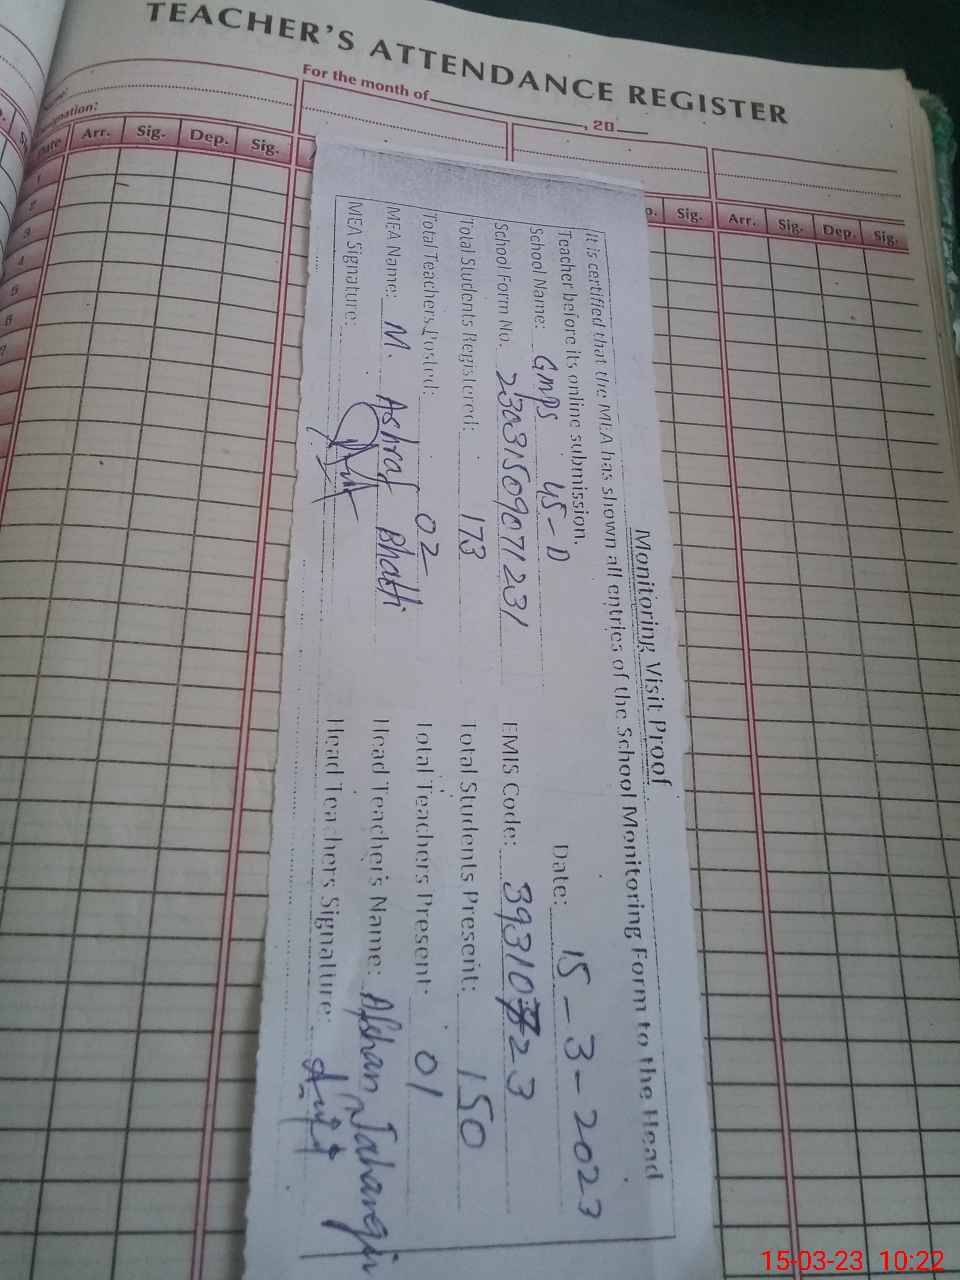 TEACHER'S ATTENDANCE REGISTER
For the month of , 20
Arr. Sig. Dep. Sig.
Sig. Arr. Sig. Dep. Sig.
1
2
3
4
5
6
7
Monitoring Visit Proof
It is certified that the MEA has shown all entries of the School Monitoring Form to the Head
Teacher before its online submission. Date: 15-3-2023
School Name: GMPS 45-D
School Form No. 23031509071231 EMIS Code: 39310 23
Total Students Registered: 173 Total Students Present: 150
Total Teachers Posted: 02 Total Teachers Present: 01
MEA Name: M. Ashraf Bhatti Head Teacher's Name: Afshan Jahangir
MEA Signature: Head Teachers Signature:
15-03-23 10:22